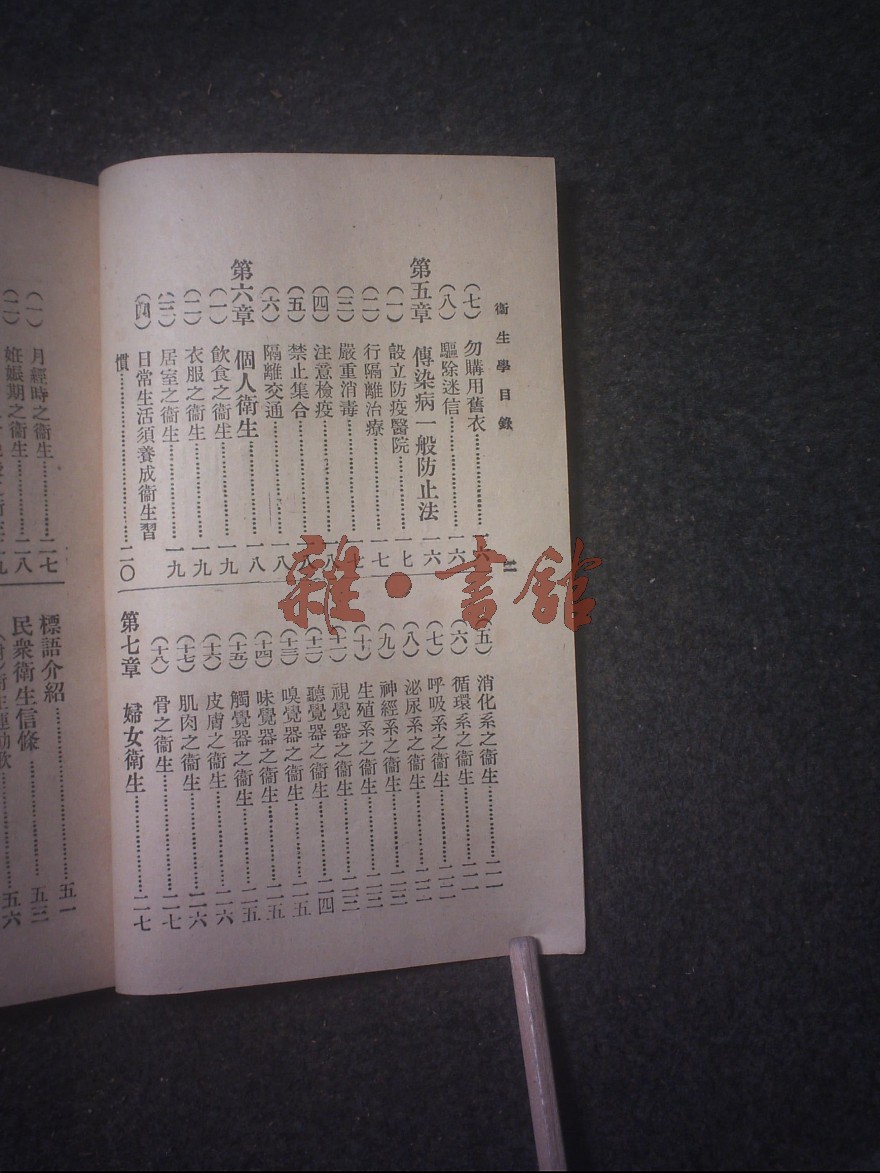 衞生學目錄 二
(七)勿購用舊衣……………六
(八)驅除迷信……………一六
第五章 傳染病一般防止法 一六
(一)設立防疫醫院……………一七
(二)行隔離治療……………一七
(三)嚴重消毒……………一七
(四)注意檢疫……………一八
(五)禁止集合……………一八
(六)隔離交通……………一八
第六章 個人衞生……………一八
(一)飲食之衞生……………一九
(二)衣服之衞生……………一九
(三)居室之衞生……………一九
(四)日常生活須養成衞生習
慣……………二〇
(五)消化系之衞生……………二一
(六)循環系之衞生……………二一
(七)呼吸系之衞生……………二二
(八)泌尿系之衞生……………二二
(九)神經系之衞生……………二三
(十)生殖系之衞生……………二三
(十一)視覺器之衞生……………二三
(十二)聽覺器之衞生……………二四
(十三)嗅覺器之衞生……………二五
(十四)味覺器之衞生……………二五
(十五)觸覺器之衞生……………二五
(十六)皮膚之衞生……………二六
(十七)肌肉之衞生……………二六
(十八)骨之衞生……………二七
第七章 婦女衞生……………二七
(一)月經時之衞生……………二七
(二)妊娠期之衞生……………二八
標語介紹……………五一
民衆衞生信條……………五三
衞生運動歌……………五六
雜·書館